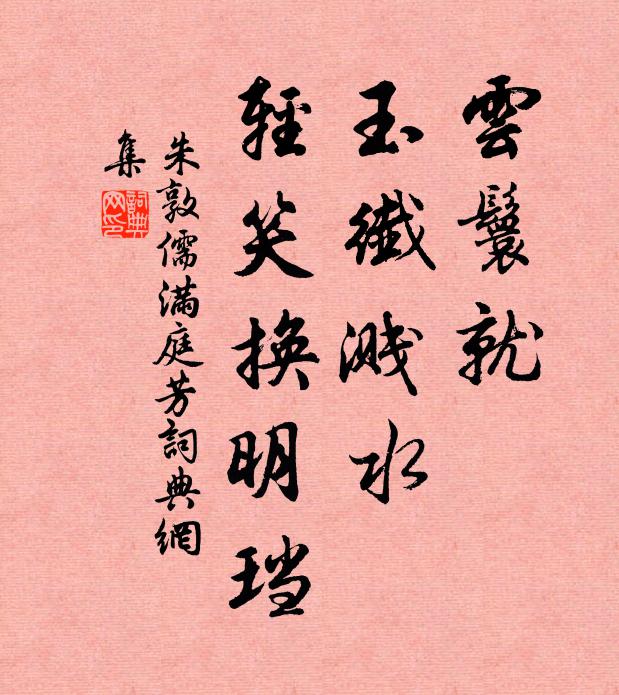 雲鬟就
玉纖濺水
輕笑換明珰
朱敦儒滿庭芳詞典網
集
詞典
网印